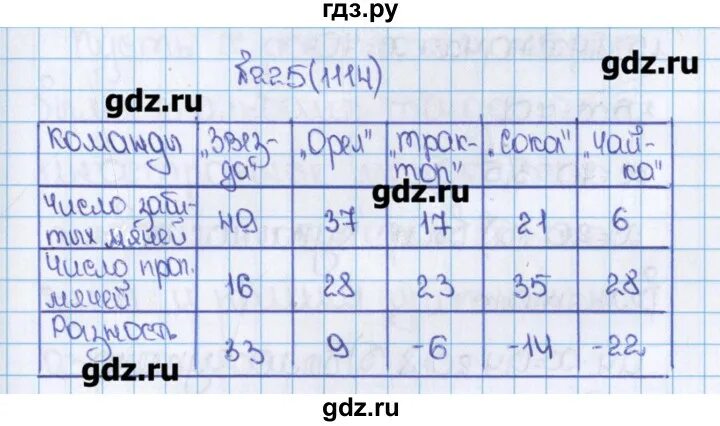 гдз.ру
№225(1114)
gdz.ru
gdz.ru
Команды „Звез-да" „Орел" „Трак-тор" „Сокол" „Чай-ка"
gdz.ru
Число заби-тых мячей 49 37 17 21 6
Число проп. мячей 16 28 23 35 28
Разность 33 9 -6 -14 -22
gdz.ru
gdz.ru
gdz.ru